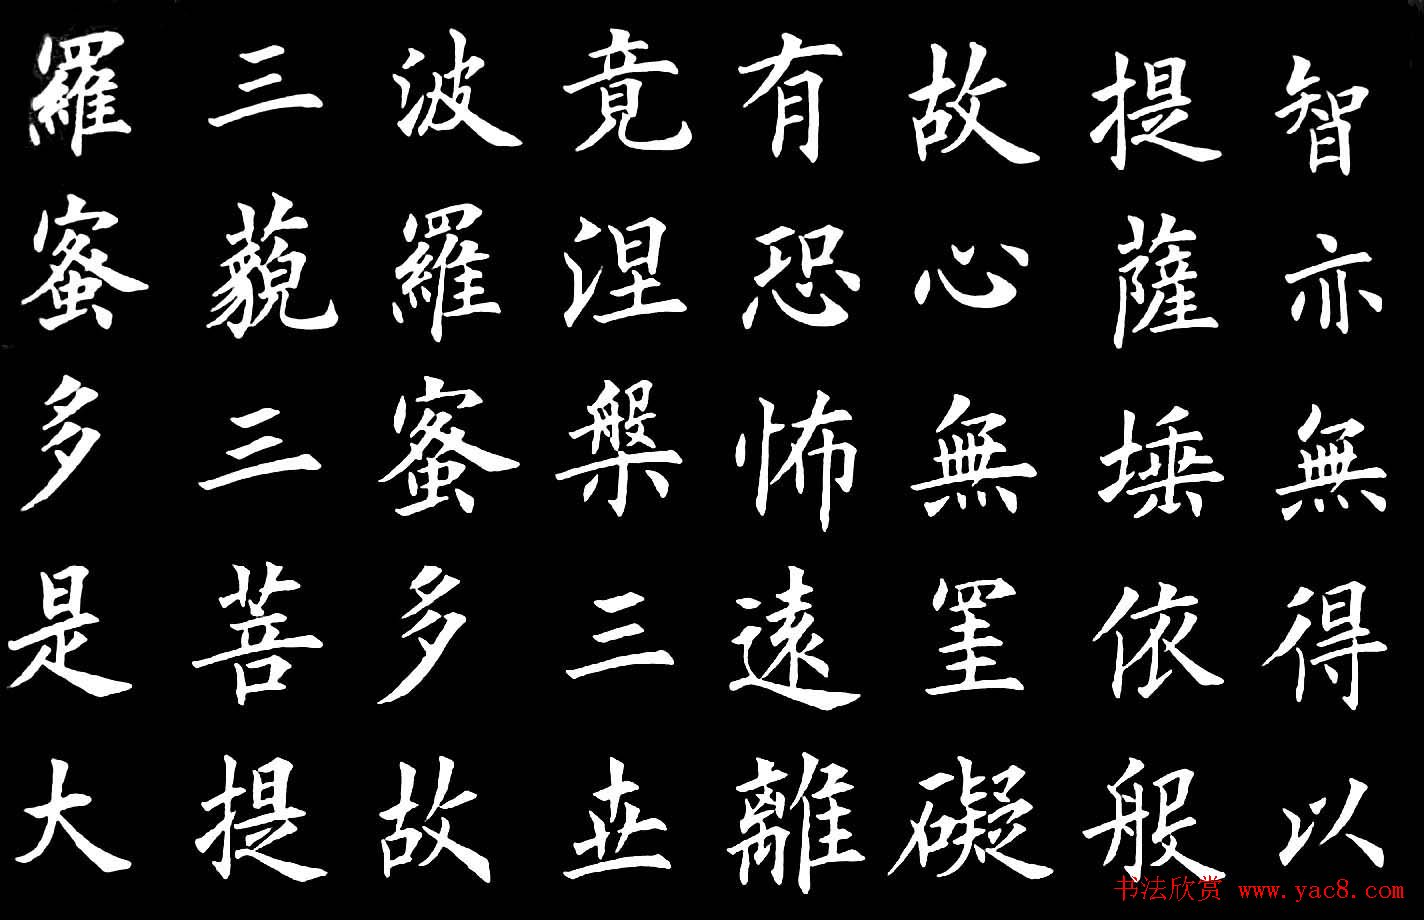 智亦無得以
提薩埵依般
故心無罣礙
有恐怖遠離
竟涅槃三世
波羅蜜多故
三藐三菩提
羅蜜多是大
书法欣赏 www.yac8.com